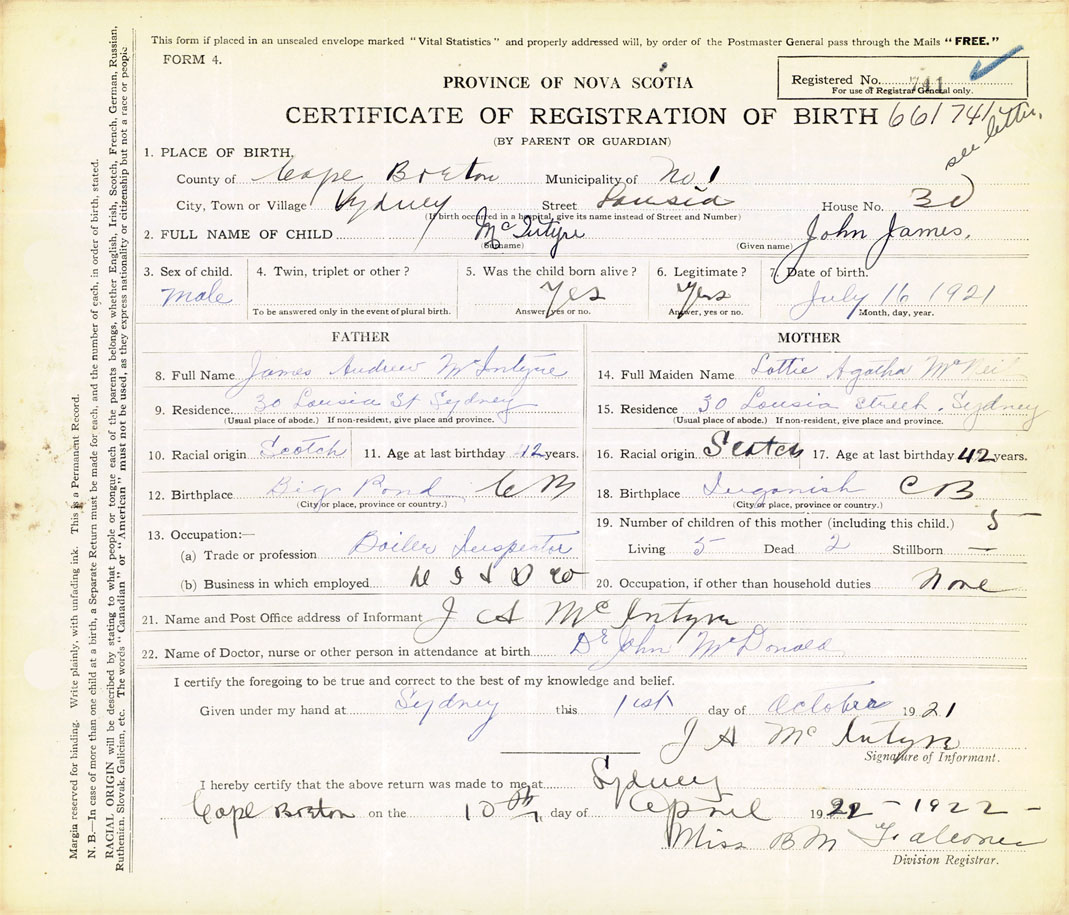 This form if placed in an unsealed envelope marked "Vital Statistics" and properly addressed will, by order of the Postmaster General pass through the Mails "FREE."
FORM 4.
PROVINCE OF NOVA SCOTIA
Registered No. 741
For use of Registrar General only.
CERTIFICATE OF REGISTRATION OF BIRTH 661741
see letter.
(BY PARENT OR GUARDIAN)
1. PLACE OF BIRTH.
County of Cape Breton Municipality of No 1
City, Town or Village Sydney Street Lousia House No. 30
(If birth occurred in a hospital, give its name instead of Street and Number)
2. FULL NAME OF CHILD McIntyre John James.
(Surname) (Given name)
3. Sex of child. 4. Twin, triplet or other? 5. Was the child born alive? 6. Legitimate? 7. Date of birth.
Male Yes Yes July 16 1921
To be answered only in the event of plural birth. Answer, yes or no. Answer, yes or no. Month, day, year.
FATHER
8. Full Name James Andrew McIntyre
9. Residence 30 Lousia St Sydney
(Usual place of abode.) If non-resident, give place and province.
10. Racial origin Scotch 11. Age at last birthday 42 years.
12. Birthplace Big Pond C B
(City or place, province or country.)
13. Occupation:—
(a) Trade or profession Boiler Inspector
(b) Business in which employed
MOTHER
14. Full Maiden Name Lottie Agatha McNeil
15. Residence 30 Lousia Street. Sydney
(Usual place of abode.) If non-resident, give place and province.
16. Racial origin Scotch 17. Age at last birthday 42 years.
18. Birthplace Inganish C B
(City or place, province or country.)
19. Number of children of this mother (including this child.) 5
Living 5 Dead 2 Stillborn —
20. Occupation, if other than household duties None
21. Name and Post Office address of Informant J A McIntyre
22. Name of Doctor, nurse or other person in attendance at birth Dr John McDonald
I certify the foregoing to be true and correct to the best of my knowledge and belief.
Given under my hand at Sydney this 1st day of October 1921
J A McIntyre
Signature of Informant.
I hereby certify that the above return was made to me at Sydney
Cape Breton on the 10th day of April 1922 - 1922 -
Miss B M Falconer
Division Registrar.
Margin reserved for binding. Write plainly, with unfading ink. This is a Permanent Record.
N. B.—In case of more than one child at a birth, a Separate Return must be made for each, and the number of each, in order of birth, stated.
RACIAL ORIGIN will be described by stating to what people or tongue each of the parents belongs, whether English, Irish, Scotch, French, German, Russian,
Ruthenian, Slovak, Galician, etc. The words "Canadian" or "American" must not be used, as they express nationality or citizenship but not a race or people